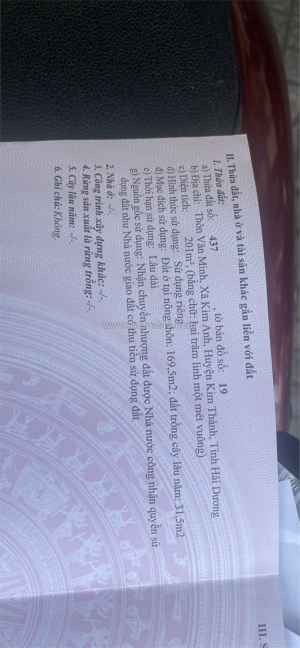 II. Thửa đất, nhà ở và tài sản khác gắn liền với đất
1. Thửa đất:
a) Thửa đất số: 437 , tờ bản đồ số: 19
b) Địa chỉ: Thôn Văn Minh, Xã Kim Anh, Huyện Kim Thành, Tỉnh Hải Dương
c) Diện tích: 201m², (bằng chữ: hai trăm linh một mét vuông)
d) Hình thức sử dụng: Sử dụng riêng
đ) Mục đích sử dụng: Đất ở tại nông thôn: 169,5m2; đất trồng cây lâu năm: 31,5m2
e) Thời hạn sử dụng: Lâu dài
g) Nguồn gốc sử dụng: Nhận chuyển nhượng đất được Nhà nước công nhận quyền sử
dụng đất như Nhà nước giao đất có thu tiền sử dụng đất
2. Nhà ở: -/-.
3. Công trình xây dựng khác: -/-.
4. Rừng sản xuất là rừng trồng: -/-.
5. Cây lâu năm: -/-.
6. Ghi chú: Không.
III. S